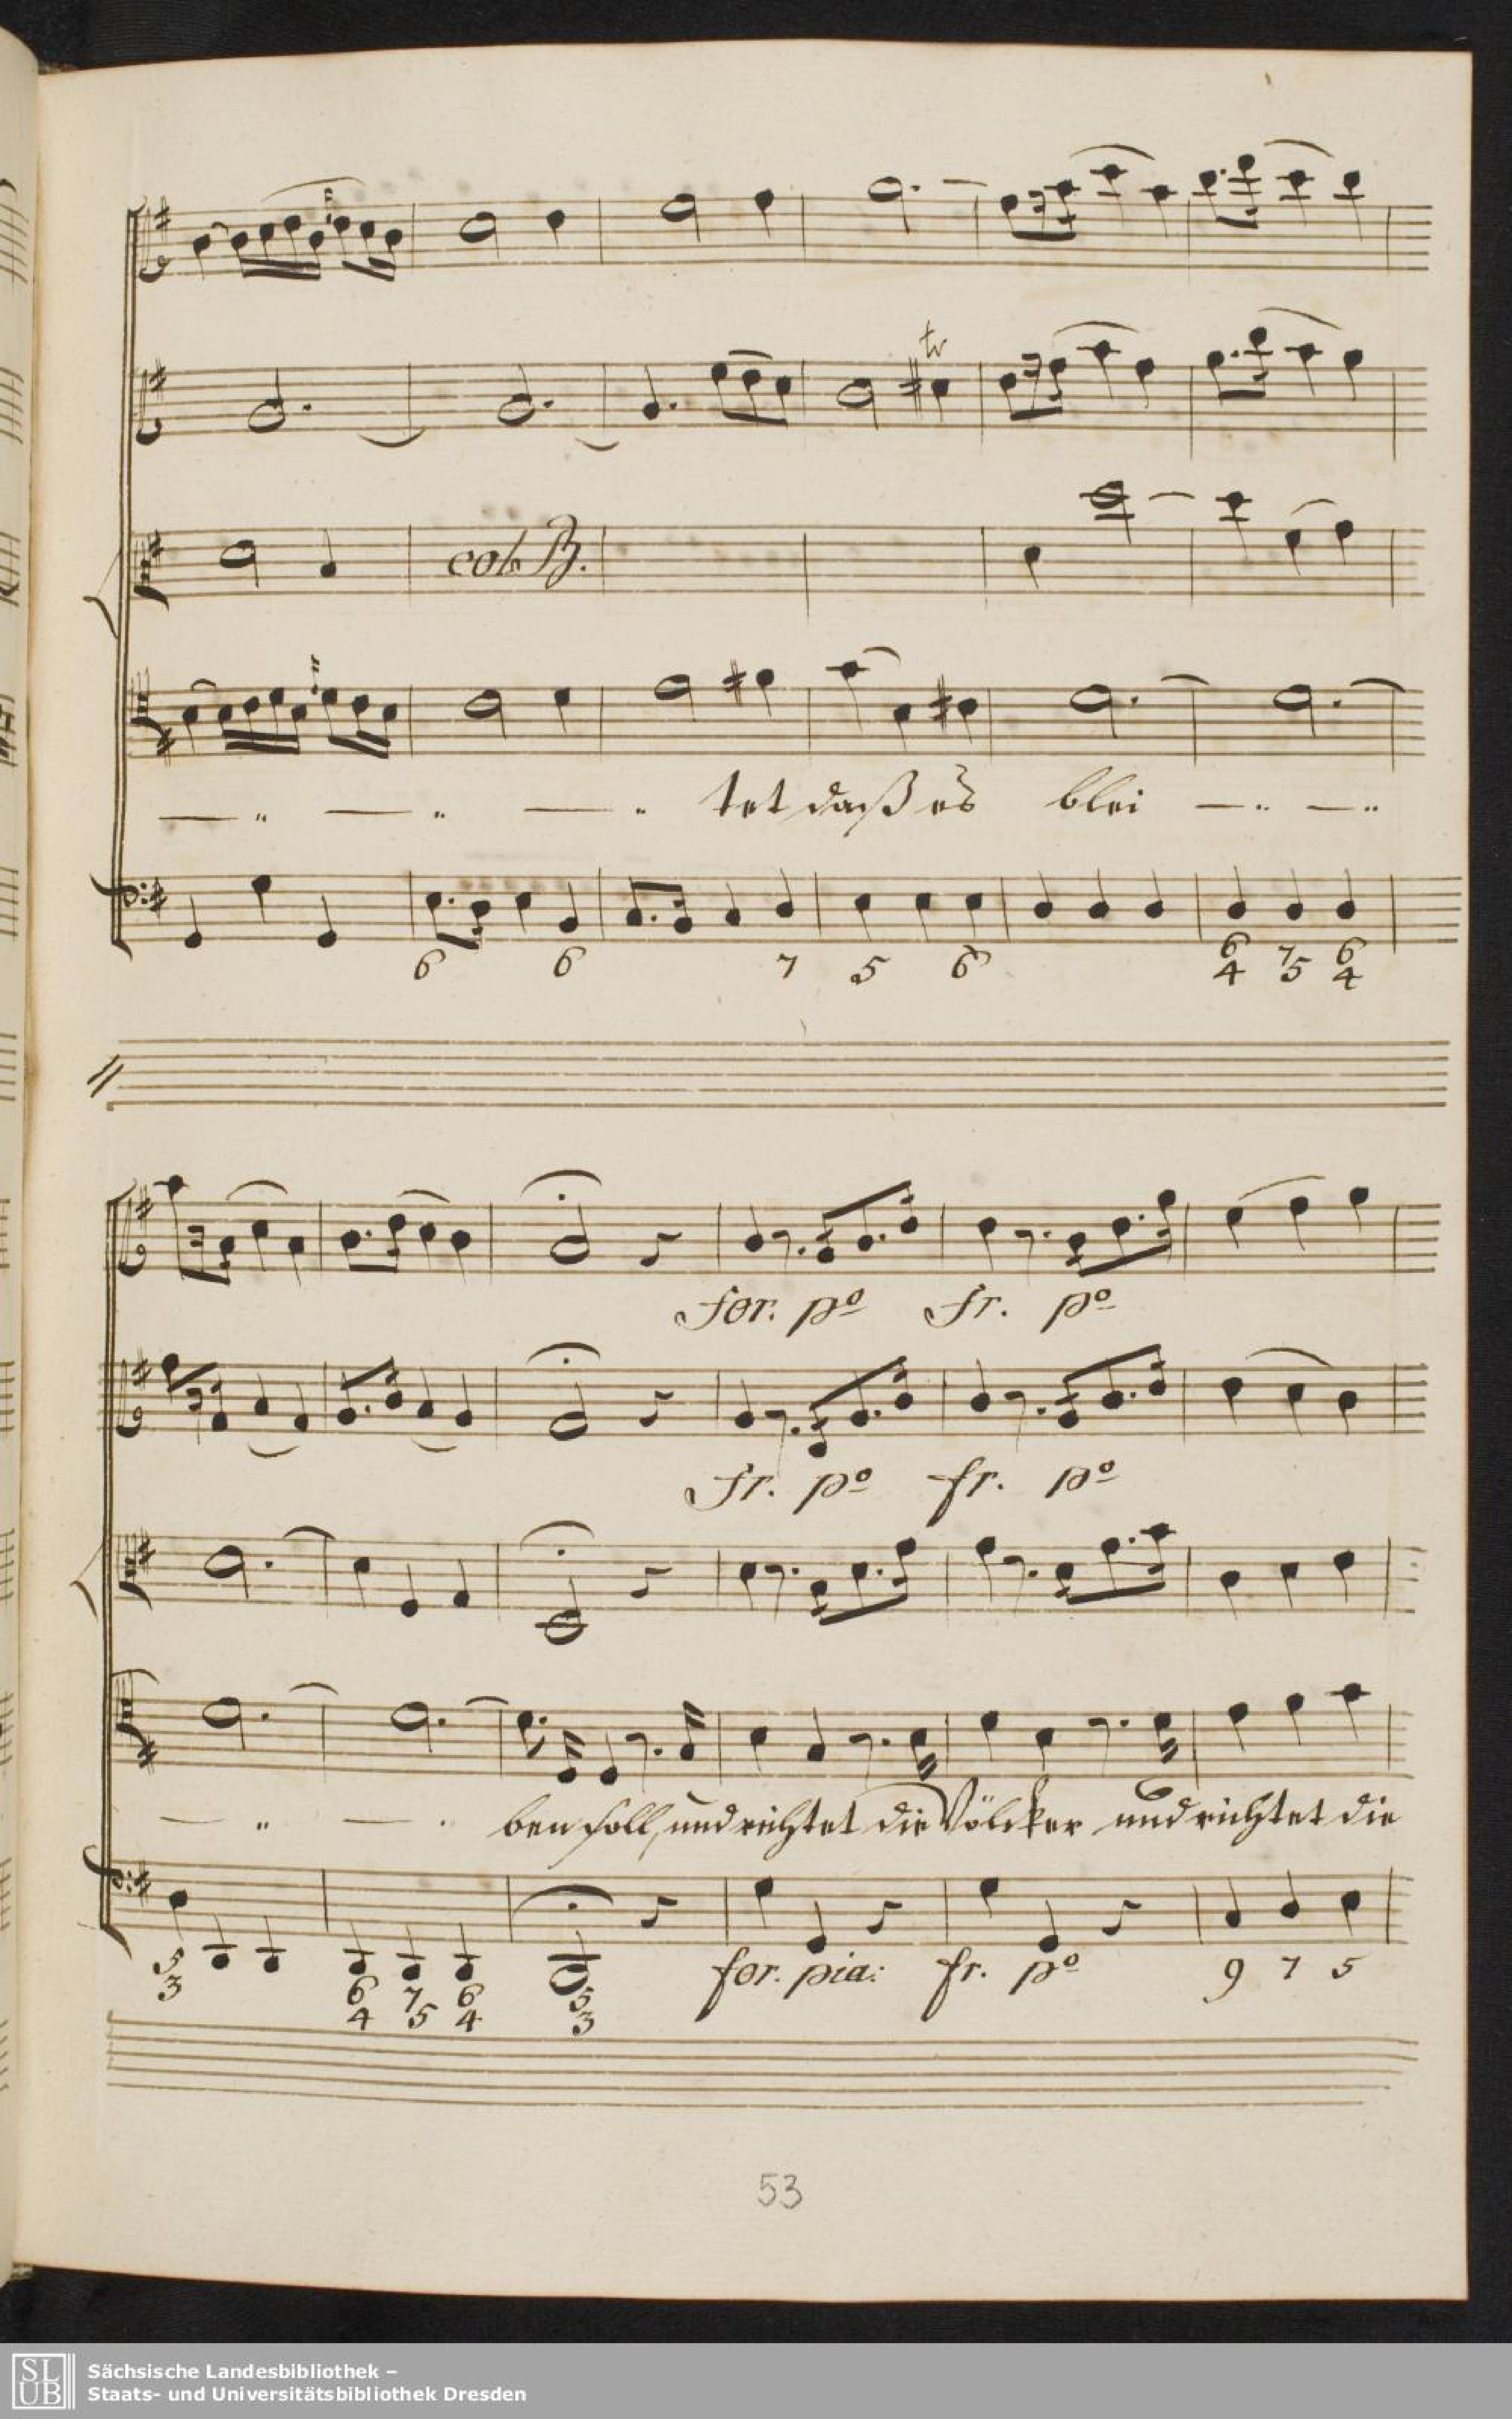 tr
col B.
tet daß es blei
6 6 7 5 6 6 7 6
4 5 4
for. po fr. po
fr. po fr. po
ben soll, und richtet die Völcker und richtet die
for. pia: fr. po
5 6 7 6 5 9 7 5
3 4 5 4 3
53
SLUB
Sächsische Landesbibliothek –
Staats- und Universitätsbibliothek Dresden